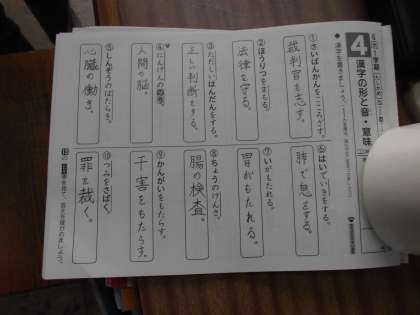 4 漢字の形と音・意味
漢字を書きましょう。
①さいばんかんをこころざす。
裁判官を志す。
②ほうりつをまもる。
法律を守る。
③ただしいはんだんをする。
正しい判断をする。
④にんげんののう。
人間の脳。
⑤しんぞうのはたらき。
心臓の働き。
⑥はいでいきをする。
肺で息をする。
⑦いがもたれる。
胃がもたれる。
⑧ちょうのけんさ。
腸の検査。
⑨かんがいをもたらす。
干害をもたらす。
⑩つみをさばく。
罪を裁く。